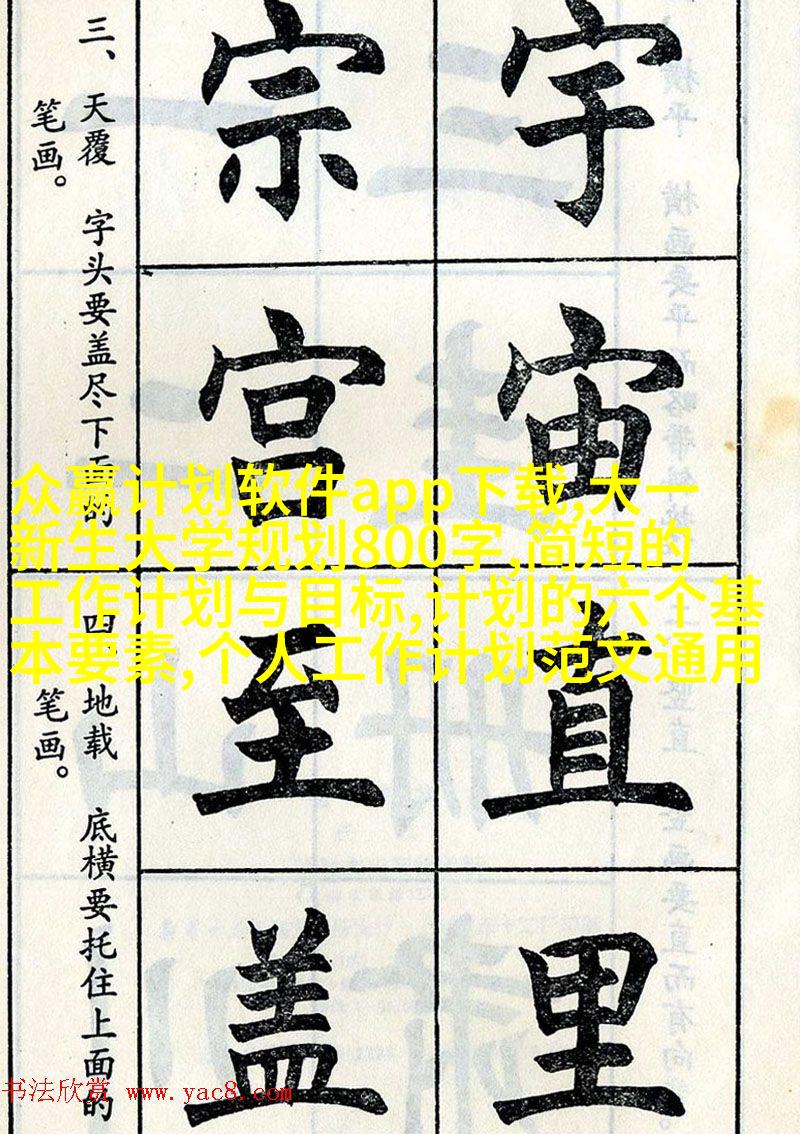 宇宙直里
宗宫至盖
三、天覆 字头要盖尽下面的
笔画。
四 地载 底横要托住上面的
笔画。
众赢计划软件app下载,大一
新生大学规划800字,简短的
工作计划与目标,计划的六个基
本要素,个人工作计划范文通用
书法欣赏 www.yac8.com